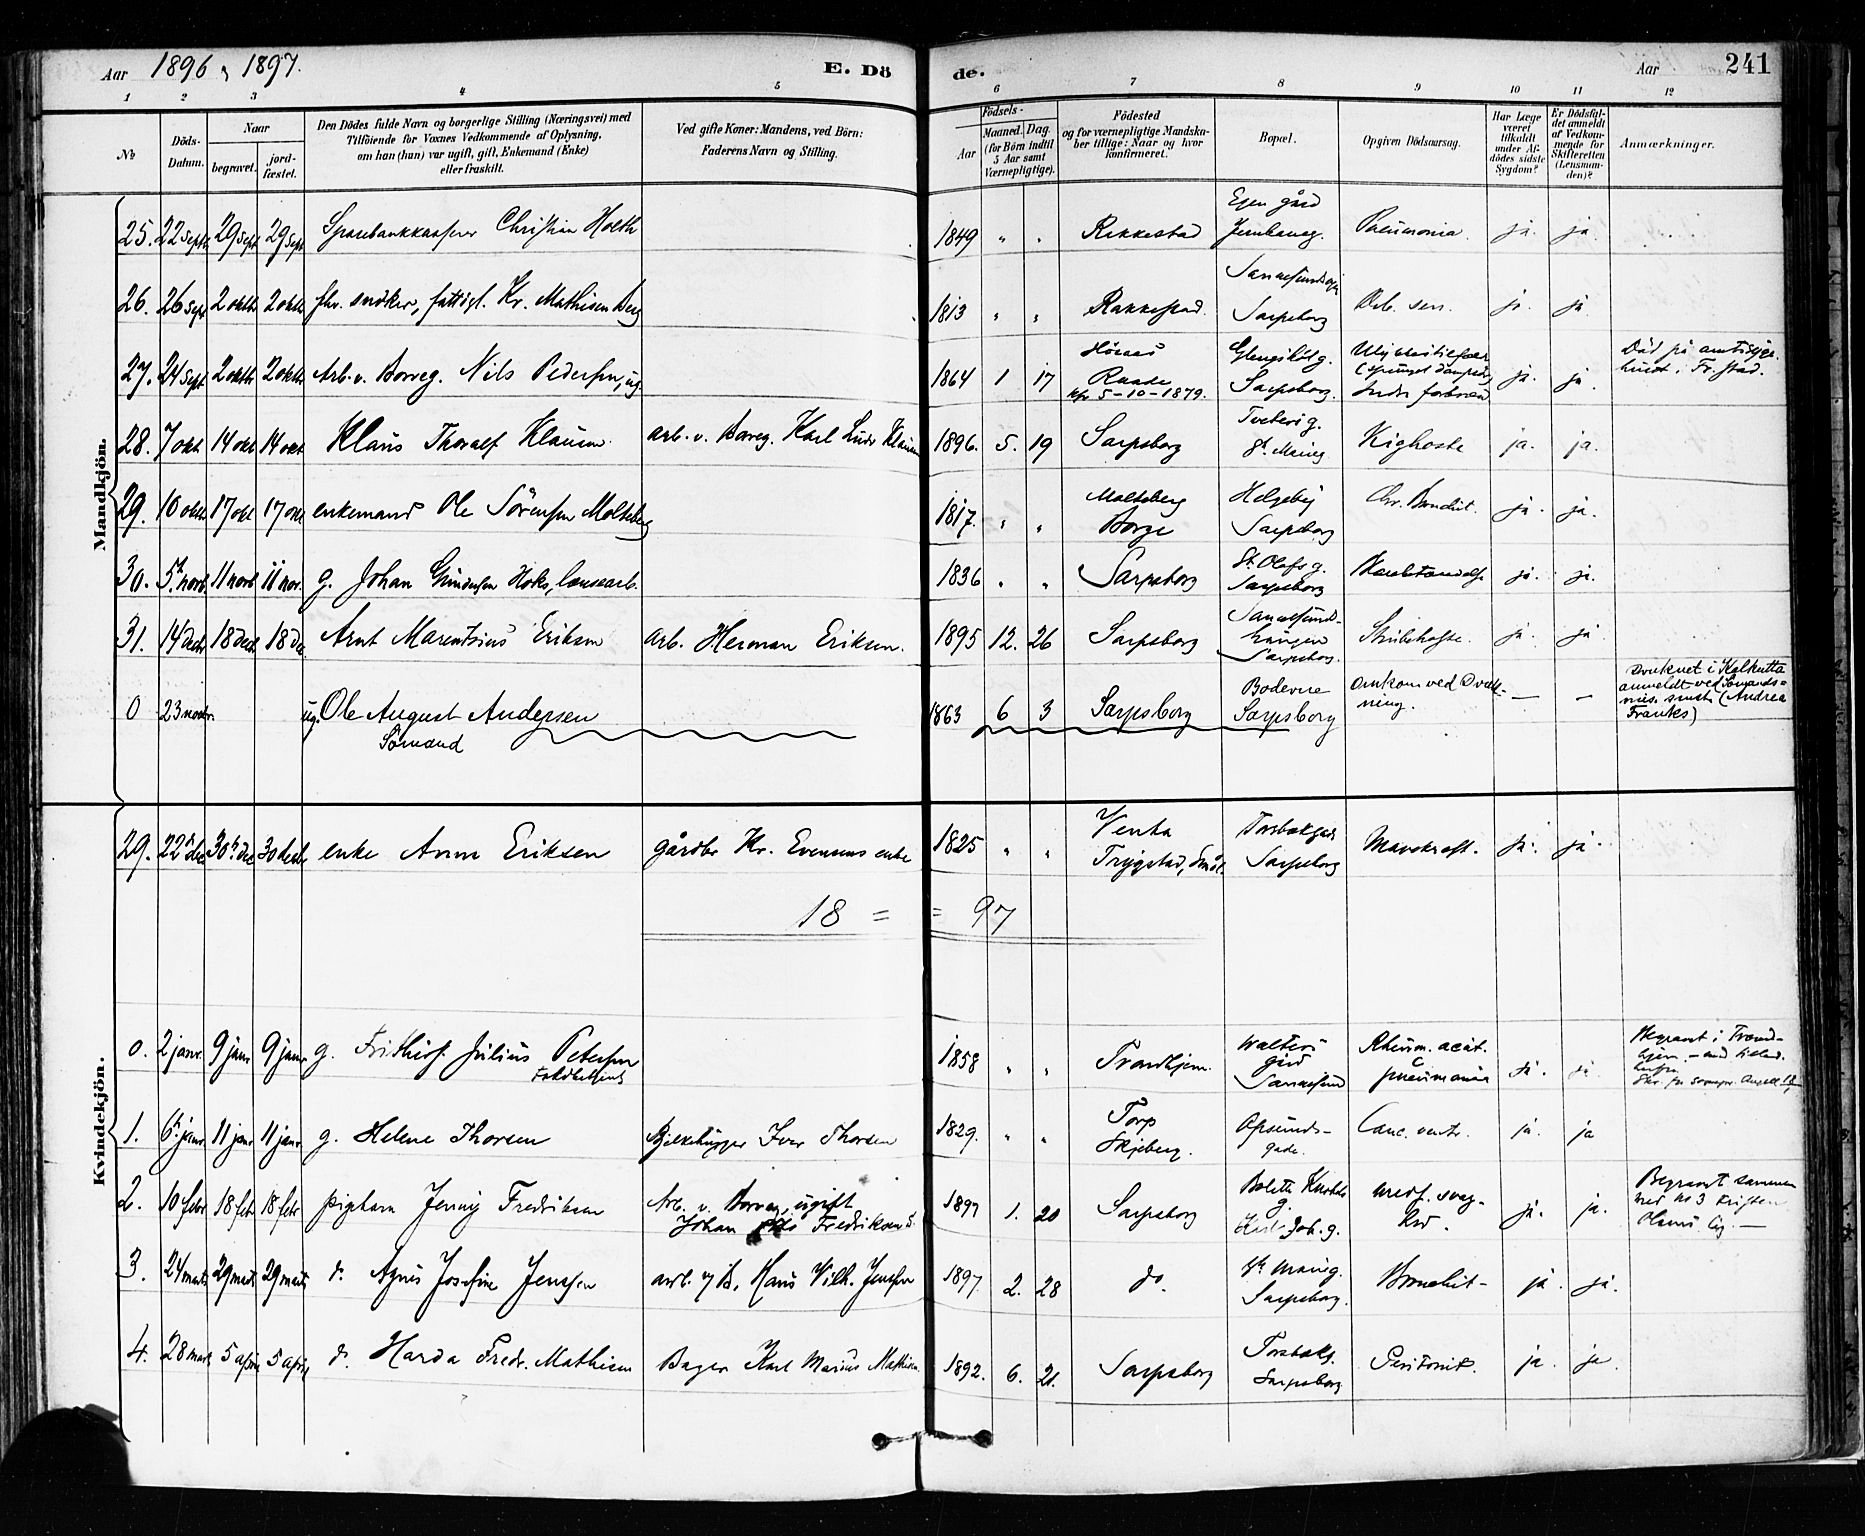 Aar 1896 & 1897.
E. Dö
de.
Aar
241
1 2 3 4 5 6 7 8 9 10 11 12
No
Döds-
Datum.
Naar
begravet.
jord-
fæstet.
Den Dödes fulde Navn og borgerlige Stilling (Næringsvei) med
Tilföiende for Voxnes Vedkommende af Oplysning,
om han (hun) var ugift, gift, Enkemand (Enke)
eller fraskilt.
Ved gifte Koner: Mandens, ved Börn:
Faderens Navn og Stilling.
Födsels-
Aar
Maaned. Dag.
(for Börn indtil
5 Aar samt
Værnepligtige).
Födested
og for værnepligtige Mandska-
ber tillige: Naar og hvor
konfirmeret.
Bopæl.
Opgiven Dödsaarsag.
Har Læge
været
tilkaldt
under Af-
dödes sidste
Sygdom?
Er Dödsfal-
det anmeldt
af Vedkom-
mende for
Skifteretten
(Lensman-
den)?
Anmærkninger.
Mandkjön.
25. 22 sept 29 sept 29 sept Sparebankkasserer Christian Holth 1849 " " Rakkestad Egen gård Jernbaneg. Pneumonia. ja. ja.
26. 26 sept 2 oktb 2 oktb fhv. snedker, fattigl. Kr. Mathisen Berg 1813 " " Rakkestad. Sannesundsvejen Sarpsborg Deb. sen. ja. ja
27. 24 sept 2 oktb 2 oktb Arb. v. Borreg. Nils Pedersen, ug. 1864 1 17 Raade kfr 5-10-1879. Glengshölg. Sarpsborg. Ulykkestilfælde ja. ja Död på amtssyge-
hus i Fr.stad.
28. 7 okt 14 okt 14 okt Klaus Thoralf Klausen arb. v. Borreg. Karl Ludv Klausen 1896. 5. 19 Sarpsborg Tveterg. St. Marieg. Kighoste ja. ja.
29. 10 oktb 17 okt 17 okt enkemand Ole Sörensen Molteberg 1817. " " Molteberg Borge Helgeby Sarpsborg Chr. Bronchit. ja. ja.
30. 5te novb 11 novb 11 nov. g. Johan Gundersen Hoks, lænsearb. 1836 " " Sarpsborg St. Olafs g. Sarpsborg ja. ja.
31. 14 decb 18 decb 18 dec. Arnt Marentsius Eriksen arb. Herman Eriksen. 1895 12. 26 Sarpsborg Sannesund-
Sarpsborg. Strubehoste. ja. ja
0 23 novbr. ug. Ole August Andersen
Sömand
1863 6 3 Sarpsborg Sarpsborg Omkom ved Drukning. — — Druknet i Kalkutta
anmeldt ved Sömands-
mis. smst. (Andrea
Franks)
29. 22de dec 30te dec 30 decbr enke Anne Eriksen gårdbr Kr. Evensens enke 1825 " " Trygstad, Smål. Torsbakgad. Sarpsborg Mavekræft. ja. ja.
18 = = 97
Kvindekjön.
0. 2 janr. 9 janr 9 janr. g. Frithiof Julius Petersen 1858 " " Trondhjem. Walters gård Sannesund Rheum. acut.
c
pneumonia ja. ja. Begravet i Trond-
hjem
1. 6te janr 11 janr 11 janr. g. Helene Thorsen Bjelkehugger Iver Thorsen 1829. " " Torp Skjeberg. Opsunds-
gade. Canc. ventr. ja. ja
2. 10 febr 18 feb. 18 febr pigebarn Jenny Fredriksen Arb. v. Borreg, ugift
Johan Fredriksen 1897 1. 20 Sarpsborg Karl Joh. g. medf. svag-
hed. ja. ja. Begravet sammen
med No 3 Kristen
Olsens lig. —
3. 24 mart 29 mart 29 marts d. Agnes Josefine Jenssen arb. v/ B. Hans Vilh. Jenssen 1897. 2. 28 do. St. Marieg. Sarpsborg. Bronchit- ja. ja.
4. 28 mart 5 april 5 april d. Harda Fredr. Mathisen Bager Karl Marius Mathisen. 1892. 6. 21. Sarpsborg Torsbakg. Sarpsborg Peritonit. ja. ja.